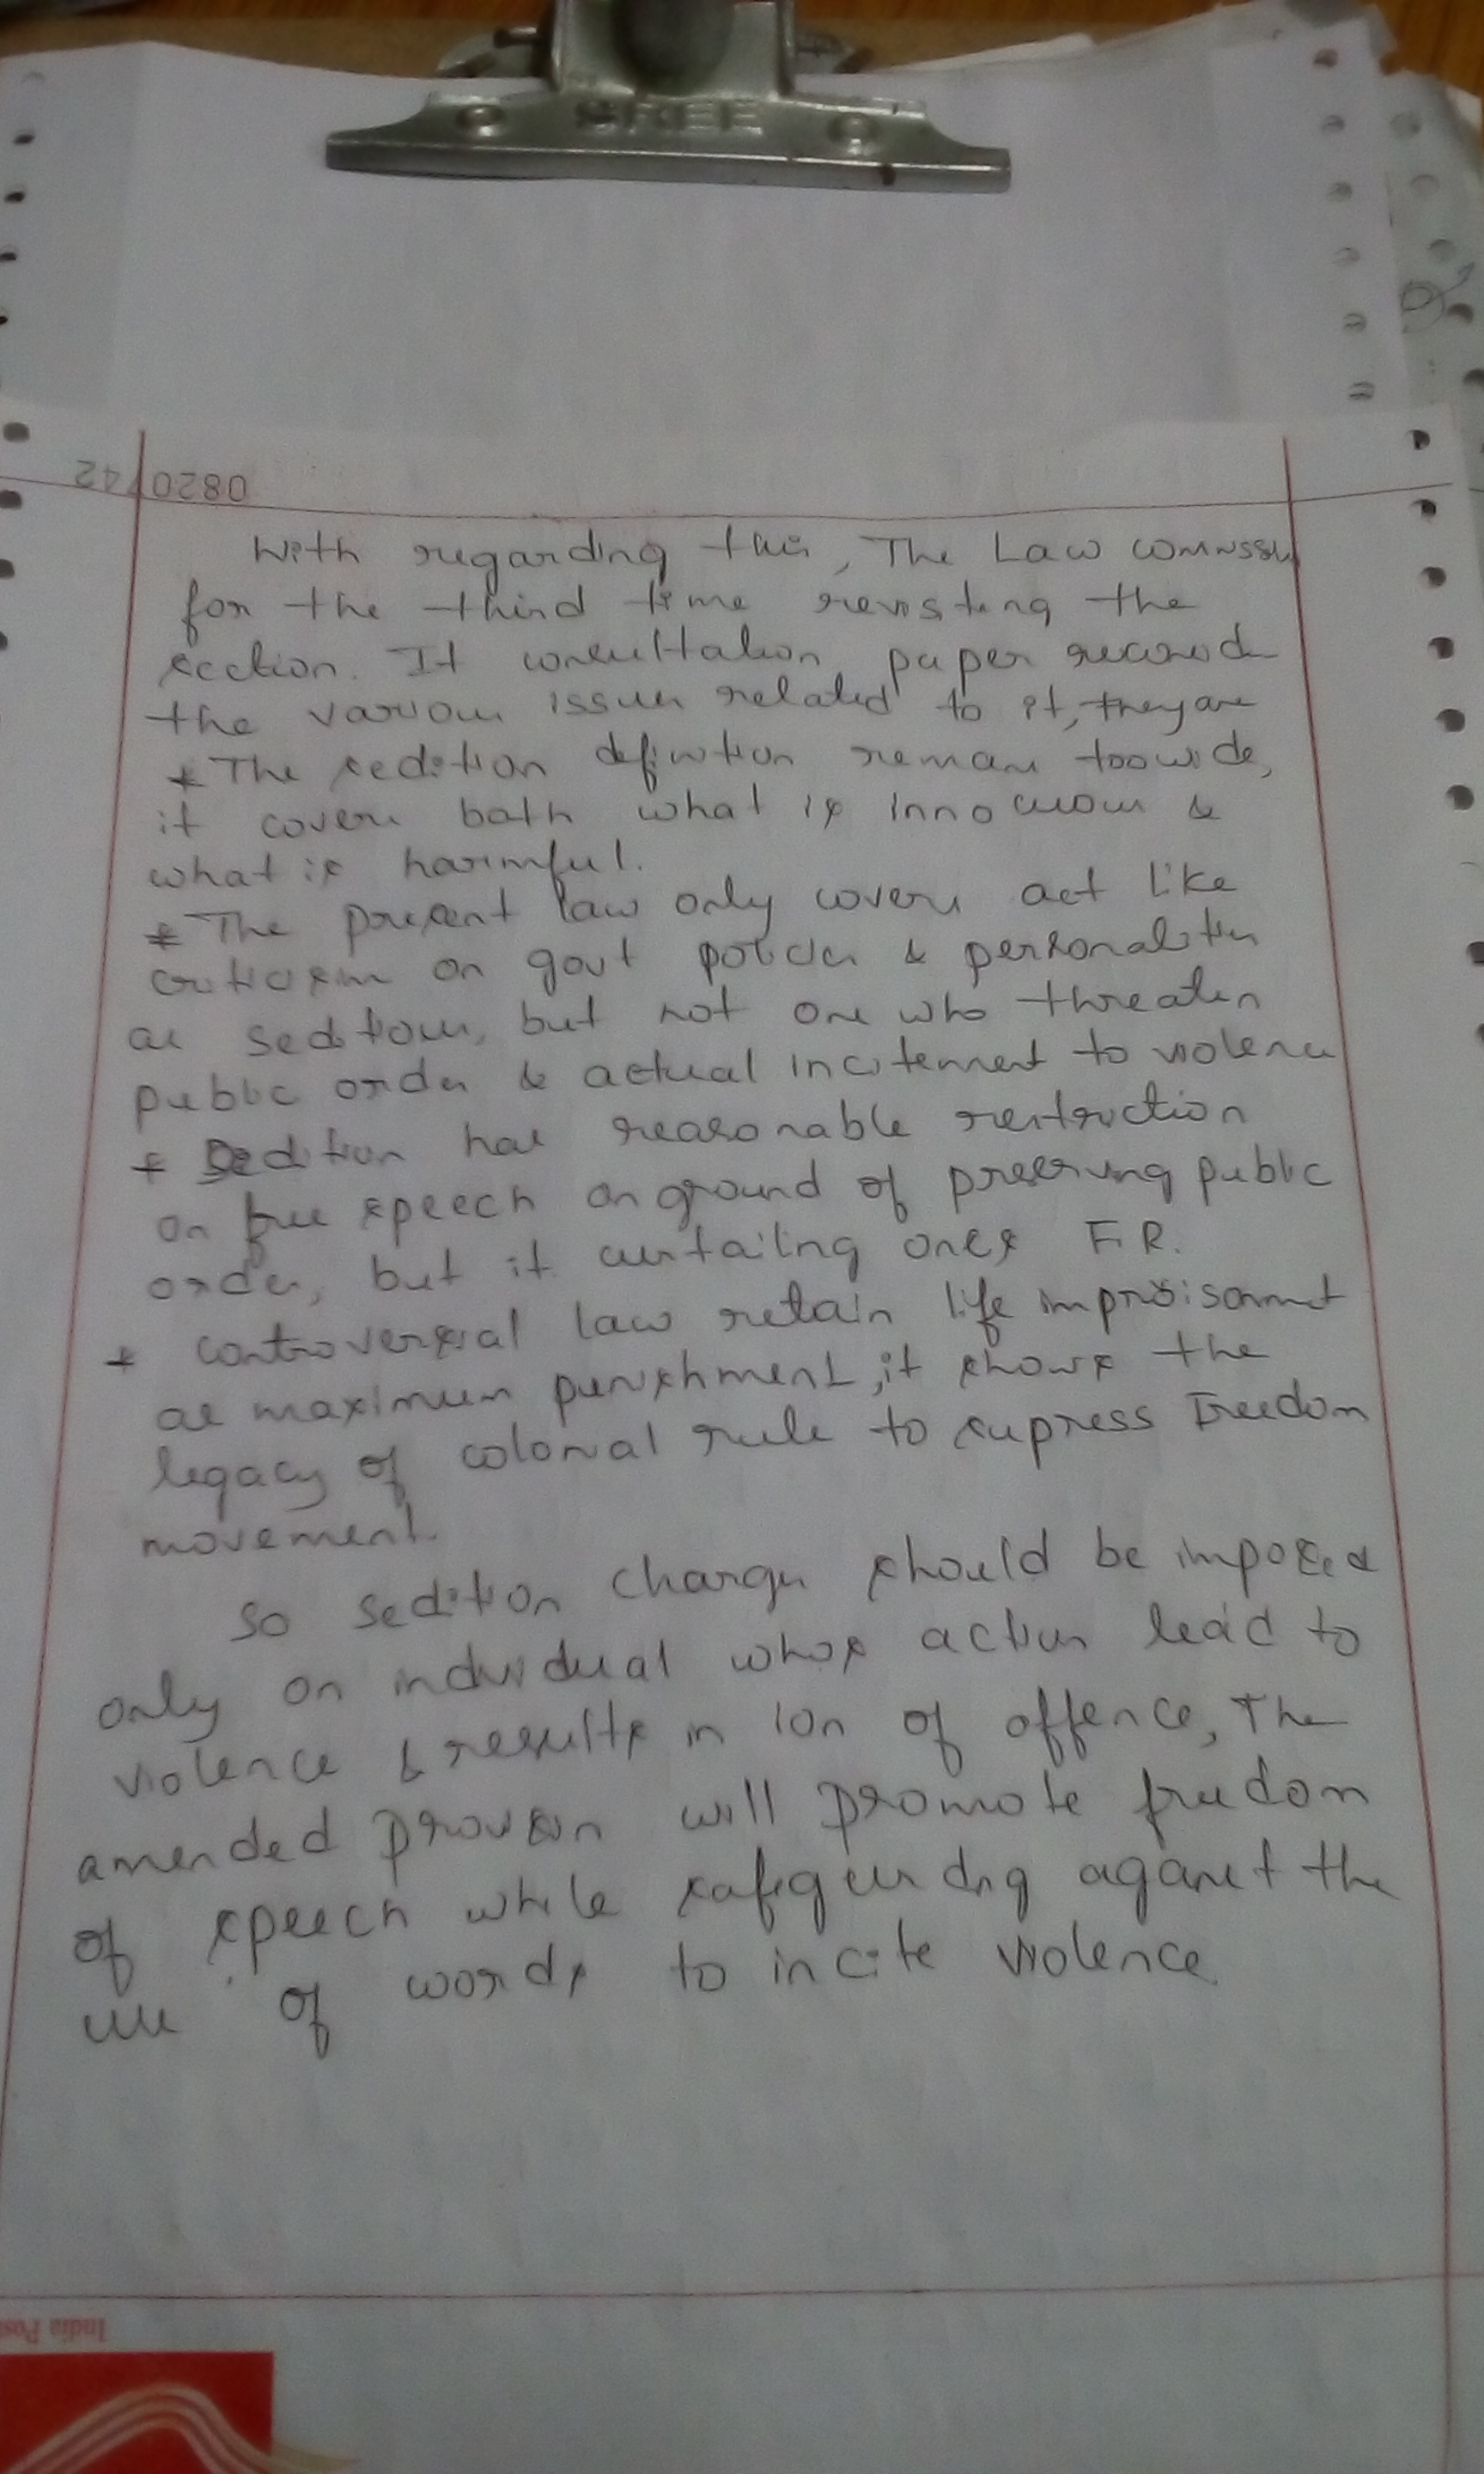 SREE
0820742
With regarding this, The Law commissi
for the third time revisting the
section. It consultation paper records
the various issues related to it, they are
* The sedition definition remans too wide,
it covers both what is innocuous &
what is harmful.
* The present law only covers act like
criticism on govt policies & personalities
as seditious, but not one who threaten
public order & actual incitement to violence
* Sedition has reasonable restriction
on free speech on ground of preserving public
order, but it curtailing ones F.R.
* controversial law retain life imprisonment
as maximum punishment, it shows the
legacy of colonial rule to supress Freedom
movement.
So sedition charges should be imposed
only on individual whos action lead to
violence & results in ion of offence, The
amended provision will promote freedom
of speech while safeguarding against the
use of words to incite violence.
India Post